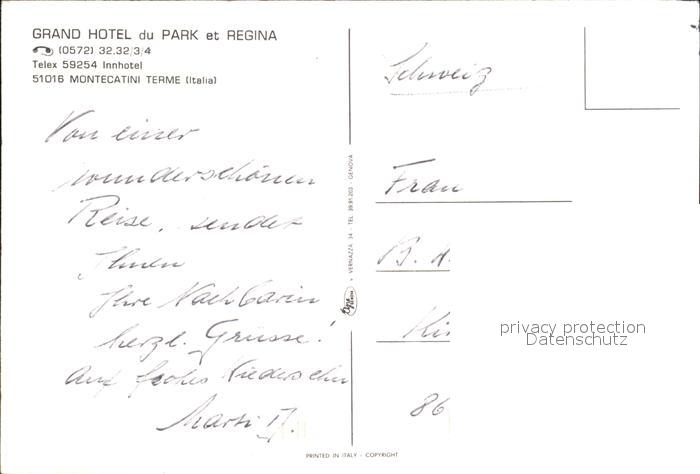 GRAND HOTEL du PARK et REGINA
(0572) 32.32/3/4
Telex 59254 Innhotel
51016 MONTECATINI TERME (Italia)
Von einer
wunderschönen
Reise, sendet
Ihnen
Ihre Nachbarin
herzl. Grüsse!
Auf frohes Wiedersehn
VERNAZZA 34 - TEL. 39.91.203 - GENOVA
Schweiz
Frau
B.
86
privacy protection
Datenschutz
PRINTED IN ITALY - COPYRIGHT